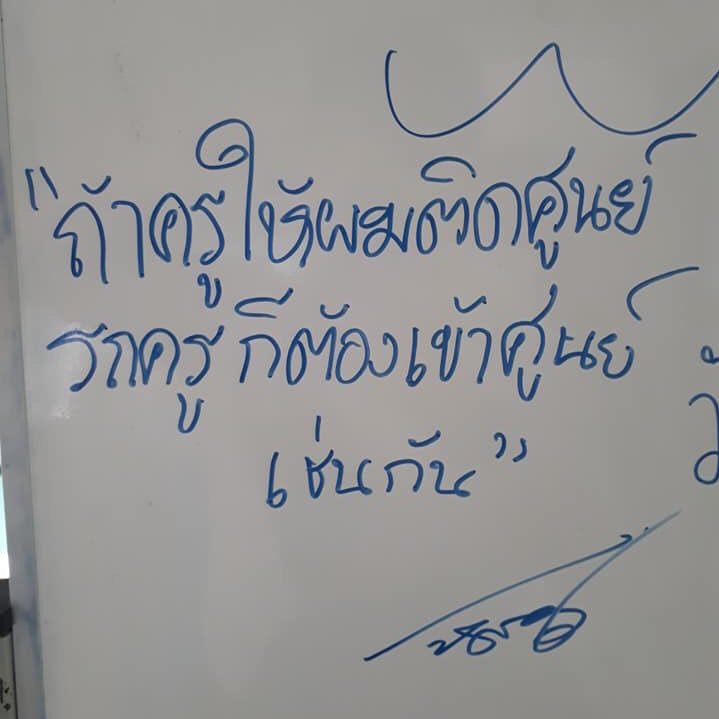 "ถ้าครูให้ผมติดศูนย์
รถครูก็ต้องเข้าศูนย์
เช่นกัน"